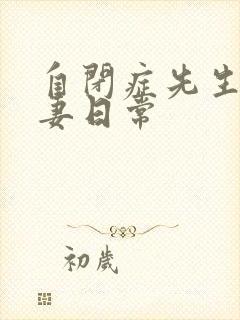 自閉症先生
妻日常
初歲